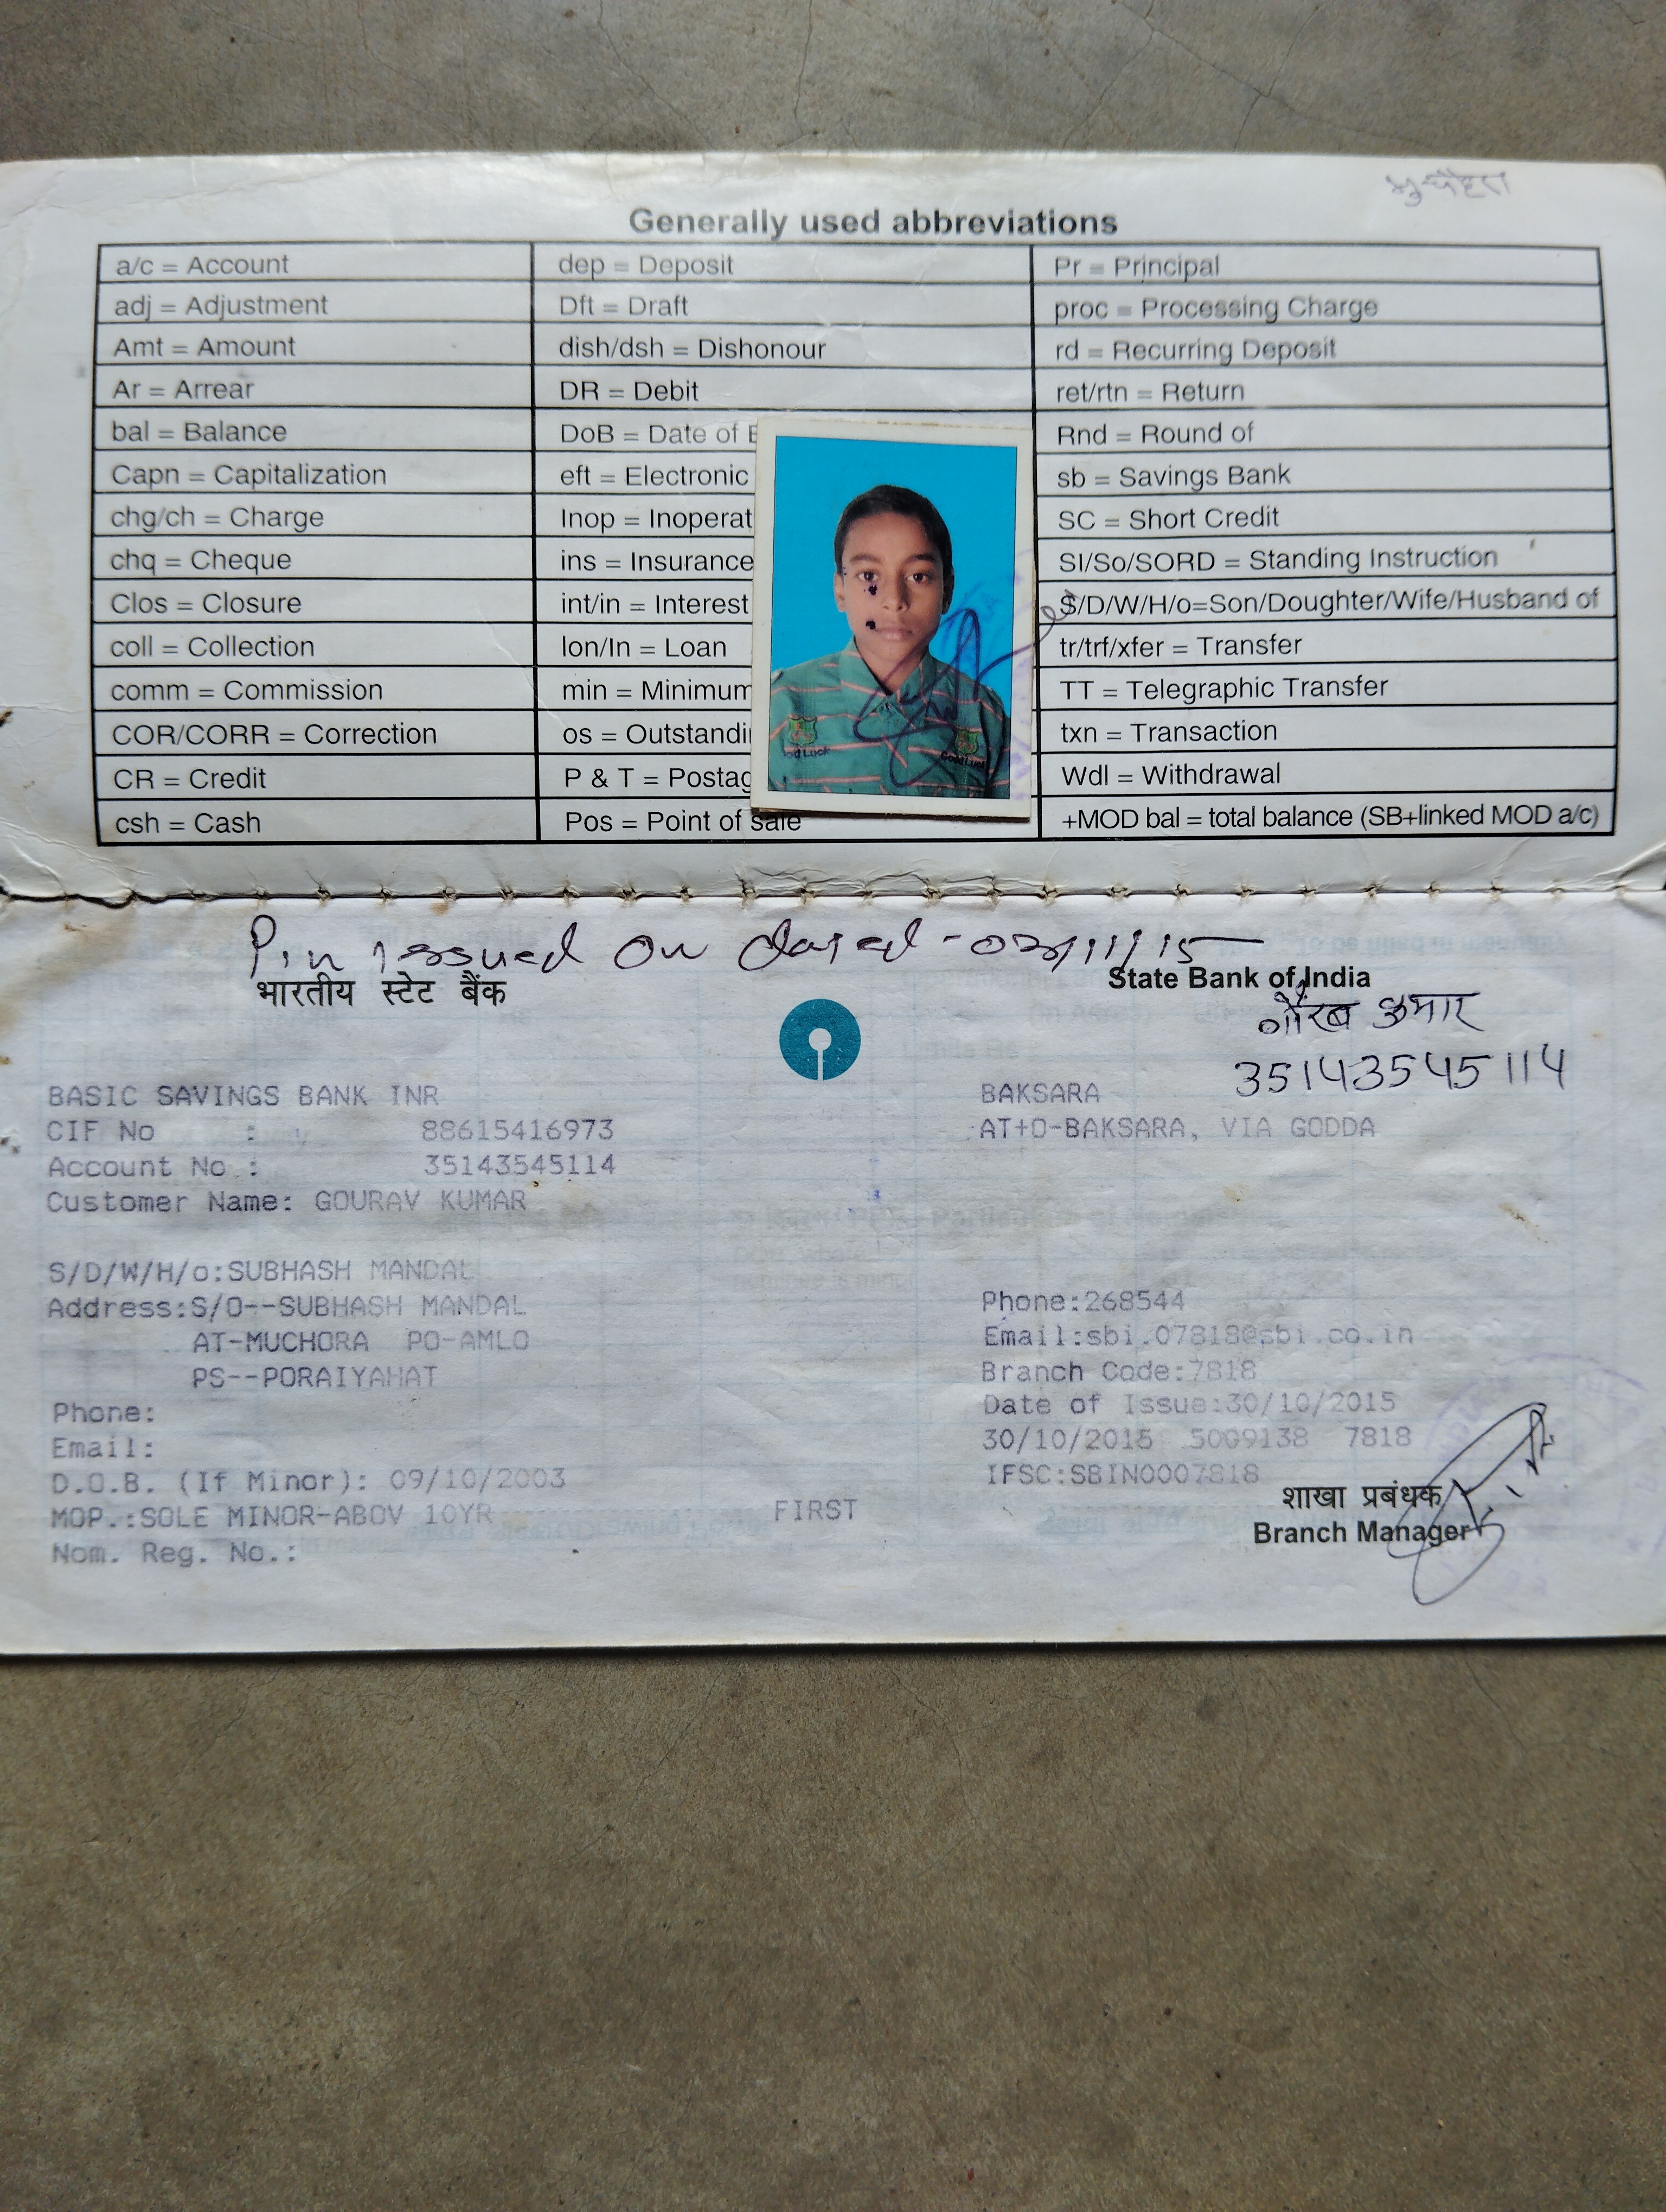 Generally used abbreviations
a/c = Account
dep = Deposit
Pr = Principal
adj = Adjustment
Dft = Draft
proc = Processing Charge
Amt = Amount
dish/dsh = Dishonour
rd = Recurring Deposit
Ar = Arrear
DR = Debit
ret/rtn = Return
bal = Balance
DoB = Date of
Rnd = Round of
Capn = Capitalization
eft = Electronic
sb = Savings Bank
chg/ch = Charge
Inop = Inoperat
SC = Short Credit
chq = Cheque
ins = Insurance
SI/So/SORD = Standing Instruction
Clos = Closure
int/in = Interest
S/D/W/H/o=Son/Doughter/Wife/Husband of
coll = Collection
lon/ln = Loan
tr/trf/xfer = Transfer
comm = Commission
min = Minimum
TT = Telegraphic Transfer
COR/CORR = Correction
os = Outstandi
txn = Transaction
CR = Credit
P & T = Postag
Wdl = Withdrawal
csh = Cash
Pos = Point of sale
+MOD bal = total balance (SB+linked MOD a/c)
Pin issued on dated -
भारतीय स्टेट बैंक
State Bank of India
गौरब कुमार
35143545114
BASIC SAVINGS BANK INR
CIF No : 88615416973
Account No.: 35143545114
Customer Name: GOURAV KUMAR
S/D/W/H/o:SUBHASH MANDAL
Address:S/O--SUBHASH MANDAL
AT-MUCHORA PO-AMLO
PS--PORAIYAHAT
Phone:
Email:
D.O.B. (If Minor): 09/10/2003
MOP.:SOLE MINOR-ABOV 10YR
FIRST
Nom. Reg. No.:
BAKSARA
AT+O-BAKSARA, VIA GODDA
Phone:268544
Email:sbi.07818@sbi.co.in
Branch Code:7818
Date of Issue:30/10/2015
30/10/2015 5009138 7818
IFSC:SBIN0007818
शाखा प्रबंधक
Branch Manager